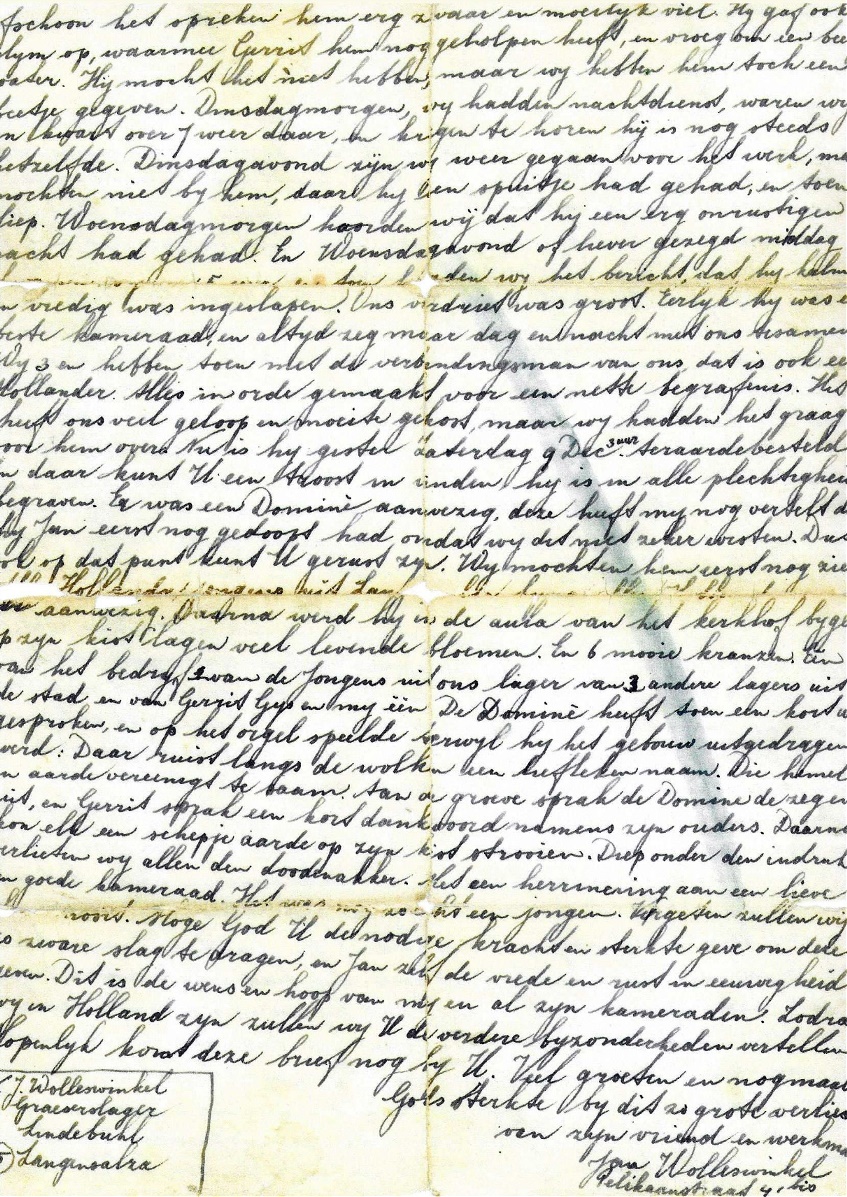 fschoon het spreken hem erg zwaar en moeilyk viel. Hy gaf ook
slym op, waarmee Gerrit hem nog geholpen heeft, en vroeg om een bee
water. Hij mocht het niet hebben, maar wy hebben hem toch een
beetje gegeven. Dinsdagmorgen, wy hadden nachtdienst, waren wy
n kwart over 7 weer daar, en kregen te horen hij is nog steeds
hetzelfde. Dinsdagavond zijn wy weer gegaan voor het werk, ma
mochten niet by hem, daar hy een spuitje had gehad, en toen
sliep. Woensdagmorgen hoorden wij dat hij een erg onrustigen
nacht had gehad. En Woensdagavond of liever gezegd middag
den wy het bericht, dat hy kalm
n vredig was ingeslapen. Ons verdriet was groot. Eerlyk hy was e
beste kameraad, en altyd zeg maar dag en nacht met ons tesamen
Wy 3 en hebben toen met de verbindingsman van ons, dat is ook ee
Hollander. Alles in orde gemaakt voor een nette begrafenis. Het
heeft ons veel geloop en moeite gekost, maar wy hadden het graag
voor hem over. Nu is hy gister Zaterdag 9 Dec. 3 uur teraardebesteld
n daar kunt U een troost in vinden hy is in alle plechtigheid
begraven. Er was een Dominè aanwezig, deze heeft my nog vertelt d
hy Jan eerst nog gedoopt had, omdat wy dit niet zeker wisten. Dus
ook op dat punt kunt U gerust zyn. Wy mochten hem eerst nog zie
Hollandse jongens uit
aanwezig. Daarna werd hy in de aula van het kerkhof byge
op zyn kist lagen veel levende bloemen. En 6 mooie kranzen. Eén
van het bedryf, 2 van de Jongens uit ons lager van 3 andere lagers uit
de stad en van Gerrit Gys en my één De Dominè heeft toen een kort w
gesproken, en op het orgel speelde terwyl hy het gebouw uitgedragen
werd: Daar ruist langs de wolken een lieflyken naam. Die hemel
n aarde vereenigt te saam. Aan de groeve sprak de Dominé de zegen
uit, en Gerrit sprak een kort dankwoord namens zyn ouders. Daarna
kon elk een schepje aarde op zyn kist strooien. Diep onder den indruk
verlieten wy allen den doodenakker. Met een herrinering aan een lieve
n goede kameraad. Het was nog een jongen. Vergeten zullen wij
nooit. Moge God U de nodige kracht en sterkte geve om deze
zo zware slag te dragen, en Jan zelf de vrede en rust in eeuwigheid
geven. Dit is de wens en hoop van my en al zyn kameraden. Zodra
wy in Holland zyn zullen wy U de verdere byzonderheden vertellen
hopenlyk komt deze brief nog by U. Veel groeten en nogmaal
Gods sterkte by dit zo grote verlies
van zyn vriend en werkma
Jan Wolleswinkel
Pelikaanstraat 4 bis
J. Wolleswinkel
Graeserslager
Lindebuhl
Langensalza